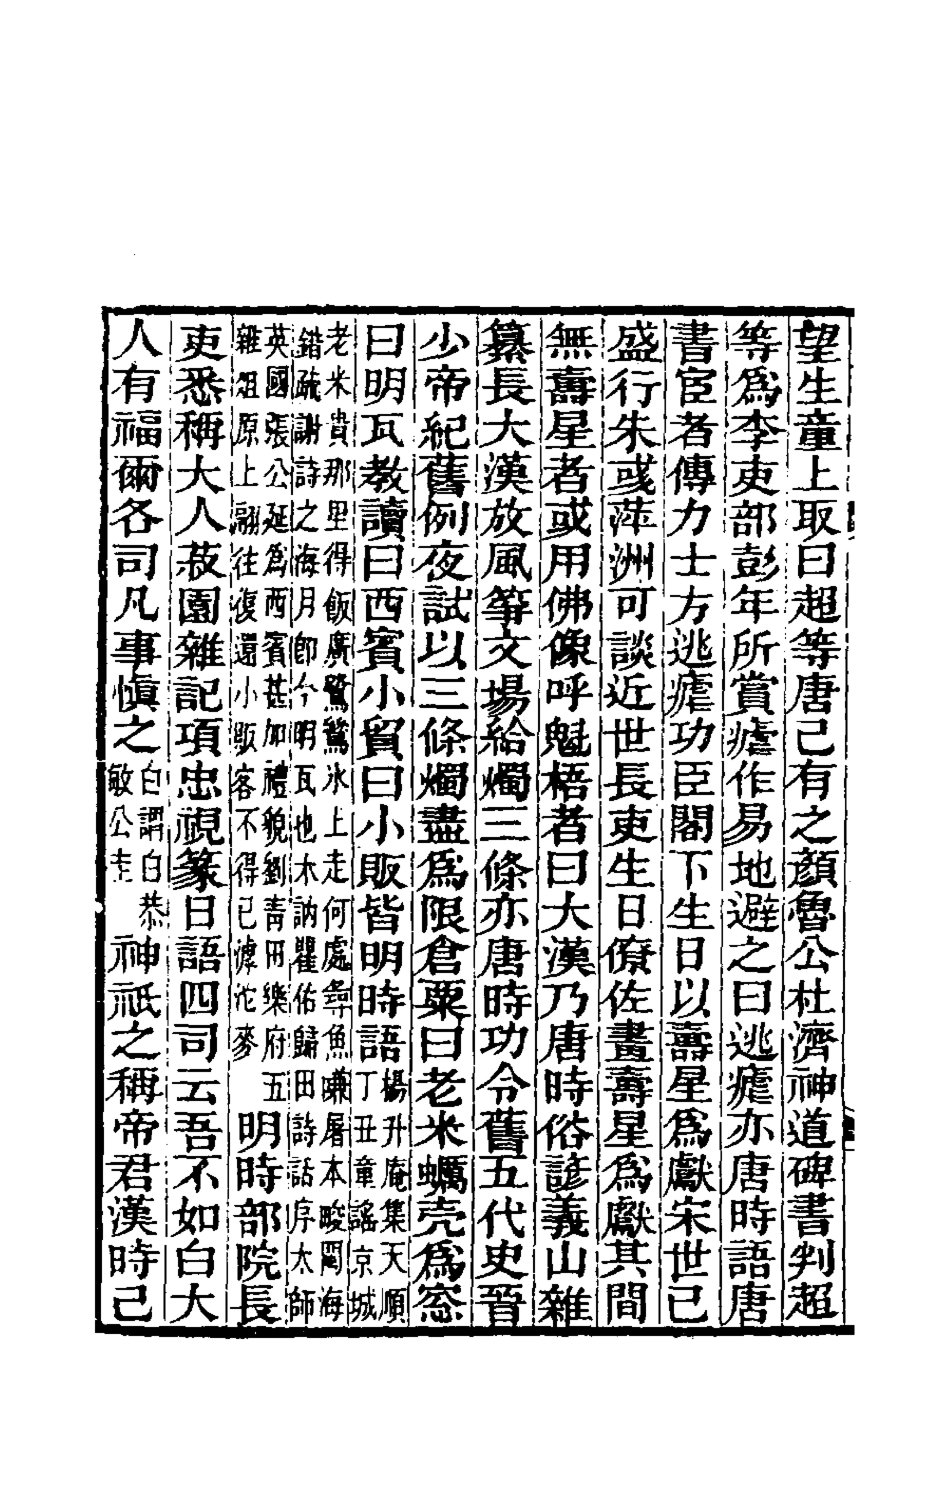 望生童上取曰超等唐已有之顏魯公杜濟神道碑書判超
等爲李吏部彭年所賞瘧作易地避之曰逃瘧亦唐時語唐
書宦者傳力士方逃瘧功臣閣下生日以壽星爲獻宋世已
盛行朱彧萍洲可談近世長吏生日僚佐畫壽星爲獻其間
無壽星者或用佛像呼魁梧者曰大漢乃唐時俗諺義山雜
纂長大漢放風箏文場給燭三條亦唐時功令舊五代史晉
少帝紀舊例夜試以三條燭盡爲限倉粟曰老米蠣壳爲窓
曰明瓦教讀曰西賓小貿曰小販皆明時語楊升庵集天順丁丑童謠京城
老米貴那里得飯廣鷺鷥氷上走何處尋魚嗛屠本畯閩海
錯疏謝詩之海月卽今明瓦也木訥瞿佑歸田詩話序太師
英國張公延爲西賓甚加禮貌劉青田樂府五
雜俎原上翩往復還小販客不得已滹沱麥
明時部院長
吏悉稱大人菽園雜記項忠視篆日語四司云吾不如白大
人有福爾各司凡事愼之白謂白恭敏公圭神祇之稱帝君漢時已